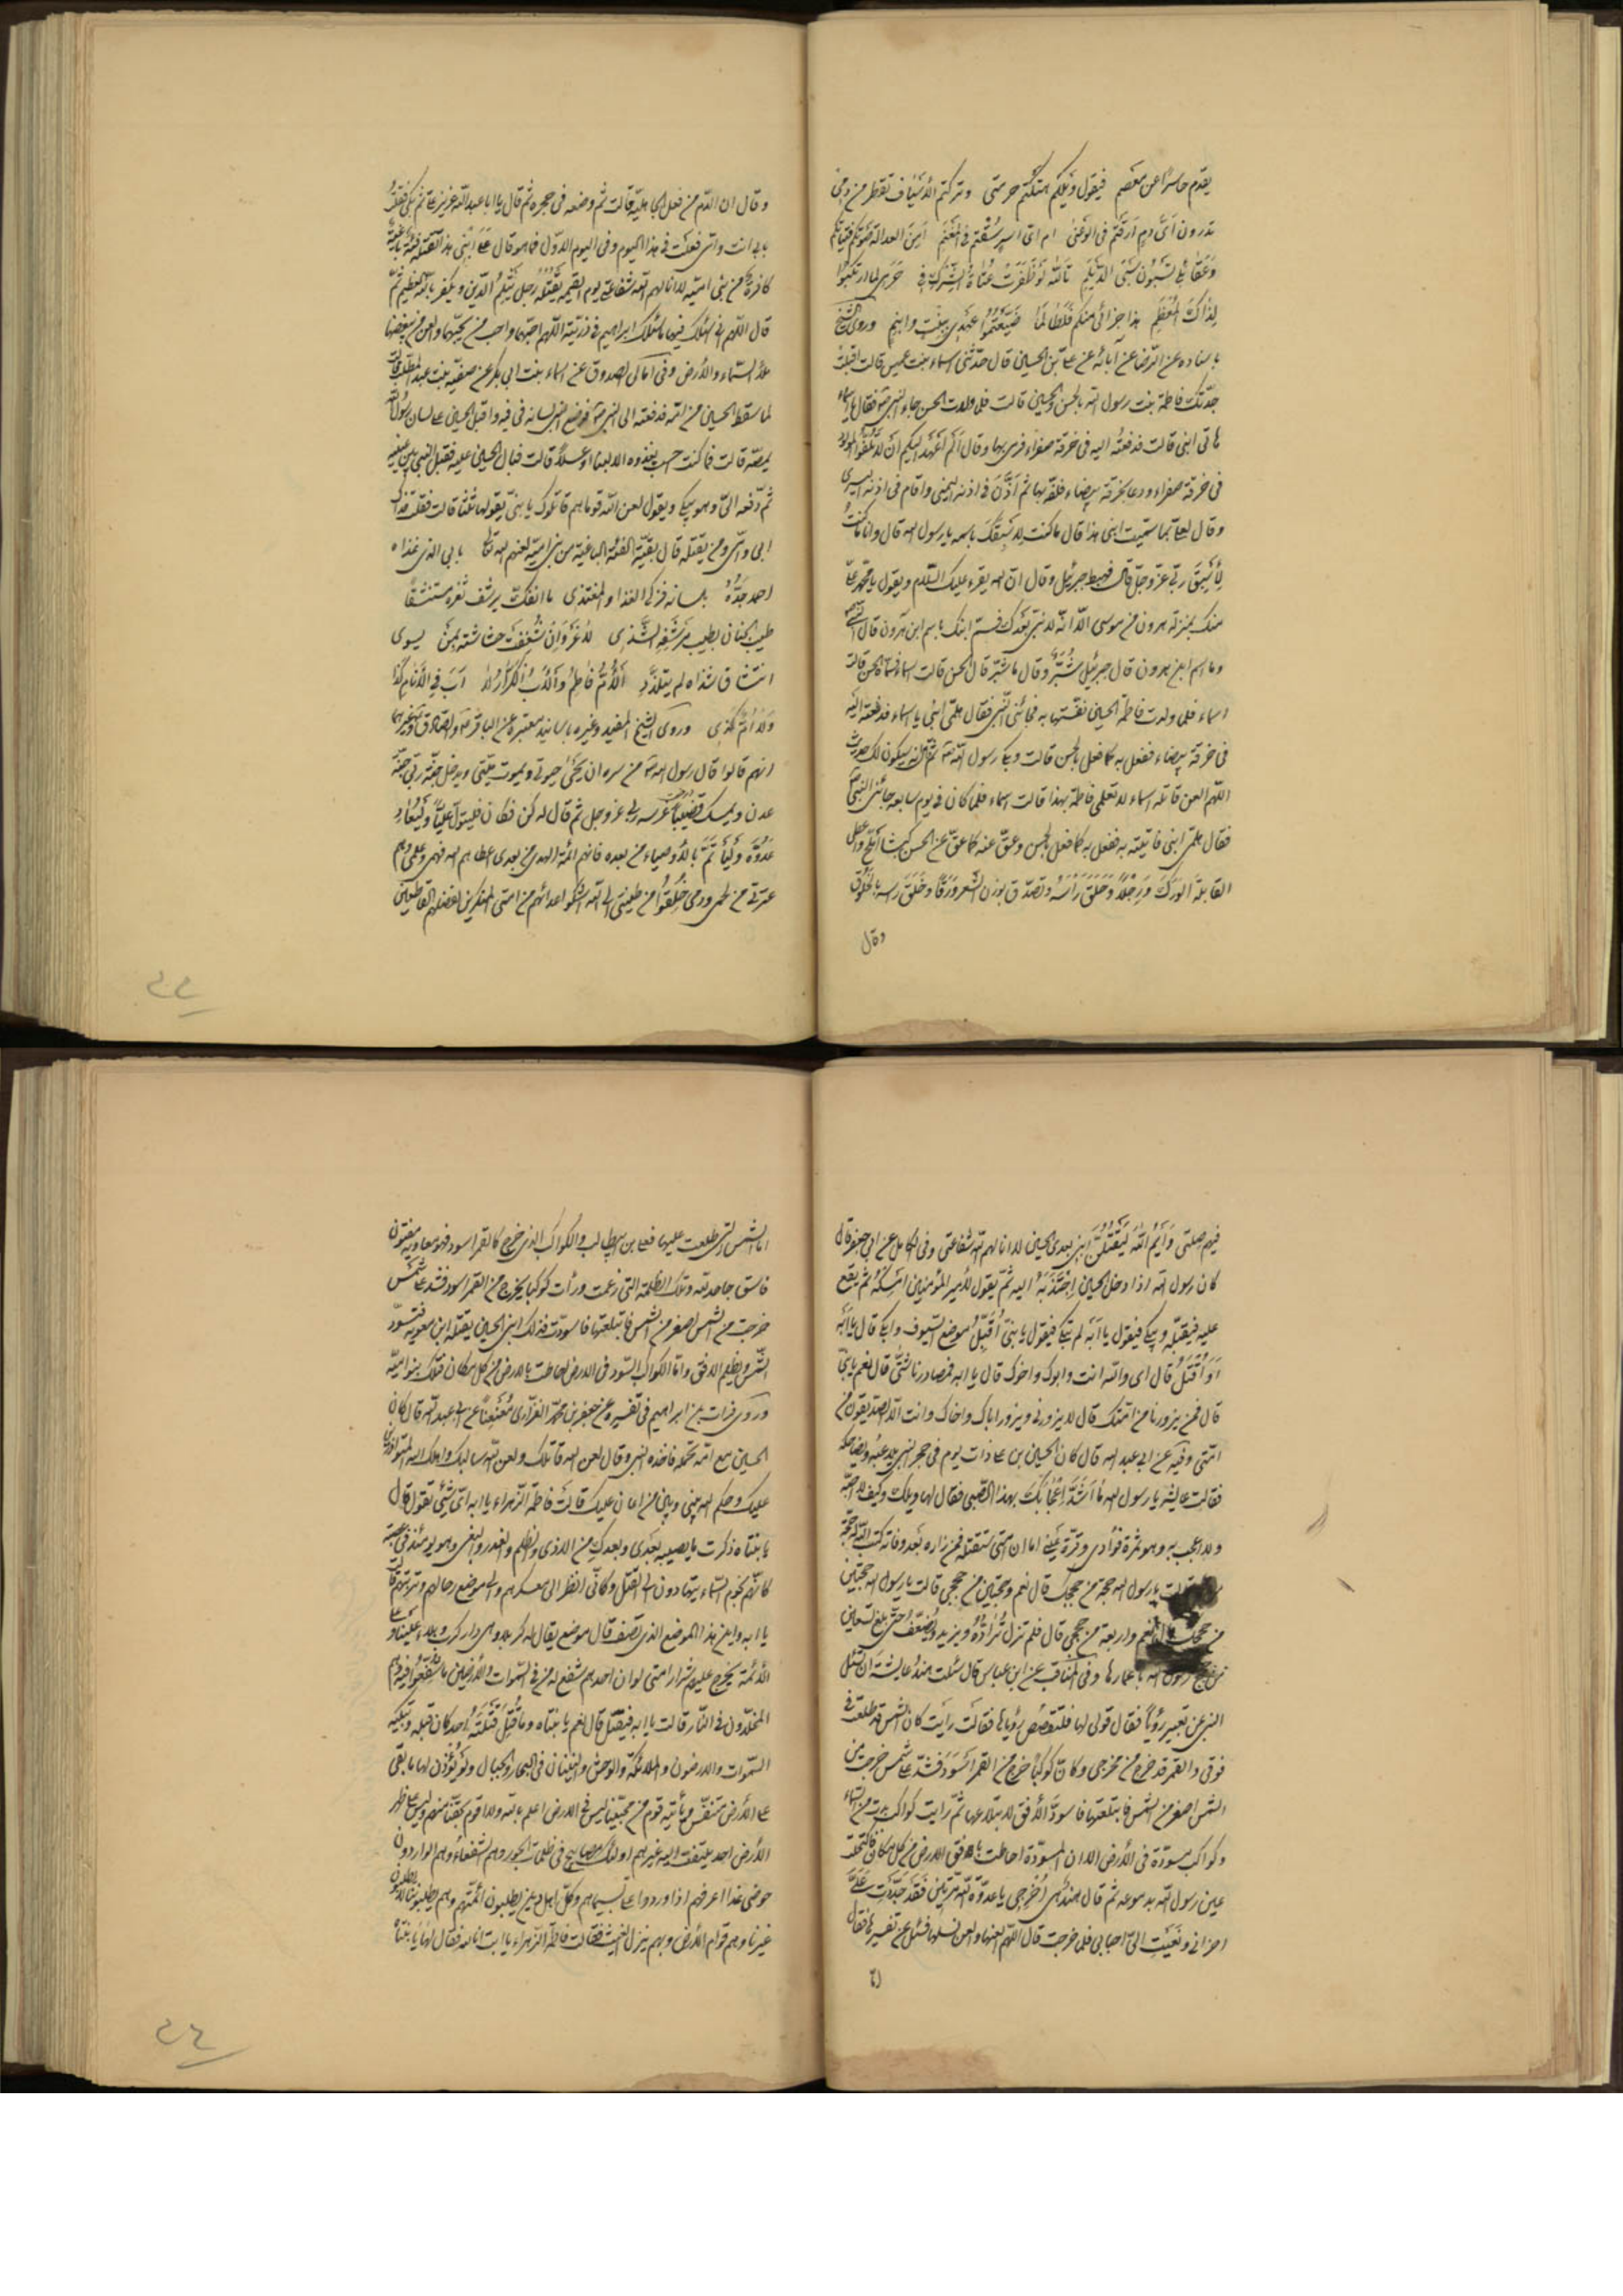 يقدم حاسرا عن معصم فيقول ويلكم هتكتم حرمتى وتركتم الأسياف تقطر من دمى
تدرون اىّ دم ارقتم فى الوغى ام اى اسير سقتم فى المغنم امن العدالة صونكم فتياتكم
بناتى تسبون سبى الديلم تالله لو ظفرت عتاة الشرك فى
لذاك المعظم هذا جزائى منكم فلطالما ضيعتموا عهدى ببنت وابنم وروى الشيخ
باسناده عن الرضا عن آبائه عن على بن الحسين قال حدثنى اسماء بنت عميس قالت قبلت
جدتك فاطمة بنت رسول الله بالحسن والحسين قالت فلما ولدت الحسن جاء النبى ص فقال يا اسماء
هاتى ابنى قالت فدفعته اليه فى خرقة صفراء فرمى بها وقال الم اعهد اليكم ان لا تلفوا المولود
فى خرقة صفراء ودعا بخرقة بيضاء فلفه بها ثم اذّن فى اذنه اليمنى واقام فى اذنه اليسرى
وقال لعلى بما سميت ابنى هذا قال ما كنت لاسبقك باسمه يا رسول الله قال وانا ما كنت
لأسبق ربى عزّ وجلّ قال فهبط جبرئيل وقال ان الله يقرء عليك السّلام ويقول يا محمد علىّ
منك بمنزلة هرون من موسى الّا انّه لا نبى بعدك فسم ابنك باسم ابن هرون قال النبى ص
وما اسم ابن هرون قال جبرئيل شُبّر وقال ما شبّر قال الحسن قالت اسماء فسمّاه الحسن قالت
اسماء فلما ولدت فاطمة الحسين نفستها به فجائنى النّبى فقال هلمّى ابنى يا اسماء فدفعته اليه
فى خرقة بيضاء ففعل به كما فعل بالحسن قالت وبكى رسول الله ص ثم قال انه سيكون لك حديث
اللهم العن قاتله اسماء لا تعلمى فاطمة بهذا قالت اسماء فلما كان فى يوم سابعه جائنى النبى ص
فقال هلمى ابنى فاتيته به ففعل به كما فعل بالحسن وعقّ عنه كما عقّ عن الحسن كبشا املح واعطى
القابلة الورك ورجلا وحلق رأسه وتصدّق بوزن الشعر ورقا وخلق رأسه بالخلوق
وقال
وقال ان الدّم من فعل الجاهلية قالت ثم وضعه فى حجره ثم قال يا ابا عبد الله عزيز علىّ ثم بكى فقلت
بابى انت وامى فعلت فى هذا اليوم وفى اليوم الاوّل فما هو قال على ابنى هذا تقتله فئة باغية
كافرة من بنى امية لا انالهم الله شفاعتى يوم القيمة يقتله رجل يثلم الدّين ويكفر بالله العظيم ثمّ
قال اللّهم انى اسئلك فيهما ما سئلك ابراهيم فى ذرّيته اللّهم احبّهما واحب من يحبّهما والعن من يبغضهما
ملأ السّماء والأرض وفى امالى الصدوق عن اسماء بنت ابى بكر عن صفيّة بنت عبد المطلب قالت
لما سقط الحسين من امّه فدفعته الى النبى ص فوضع النبى لسانه فى فيه واقبل الحسين على لسان رسول الله
يمصّه قالت فما كنت احسب يغذوه الا لبنا او عسلاً قالت فبال الحسين عليه فقبل النبى بين عينيه
ثم دفعه الىّ وهو يبكى ويقول لعن الله قوما هم قاتلوك يا بنىّ يقولها ثلثا قالت فقلت فداك
ابى وامّى ومن يقتله قال بقيّة الفئة الباغية من بنى امية لعنهم الله تعالى بابى الذى غذاه
احمد جدّه بلسانه فزكى الغذا والمغتذى ما انفكّ يرشف ثغره مستنشقاً
طيب الجنان بطيب مرشفه الشّذى لا غروان شغفت حشاشته بمن يسوى
انتشاق شذاه لم يتلذّذ الأم فاطم والاب الكرّار لا اب فى الأنام كذا
ولا امّ كذى وروى الشيخ المفيد وغيره باسانيد معتبرة عن الباقر والصّادق وغيرهما
انهم قالوا قال رسول الله ص من سره ان يحيى حيوتى ويموت ميتتى ويدخل جنّة ربّى جنّة
عدن ويمسك قضيباً غرسه ربى عز وجل ثم قال له كن فكان فليتولّ عليّاً وليعاد
عدوّه وليأتمّ بالأوصياء من بعده فانهم ائمّة الهدى من بعدى اعطاهم الله فهمى وعلمى وهم
عترتى من لحمى ودمى خلقوا من طينتى الى الله اشكوا اعدائهم من امتى المنكرين لفضلهم القاطعين
٢٣
فيهم صلتى وأيم الله ليقتلنّ ابنى بعدى الحسين لا انالهم الله شفاعتى وفى الكامل عن ابى جعفر قال
كان رسول الله اذا دخل الحسين اجتذبه اليه ثمّ يقول لأمير المؤمنين امسكه ثم يقع
عليه فيقبّله ويبكى فيقول يا ابه لم تبكى فيقول يا بنىّ اقبّل موضع السّيوف وابكى قال يا ابه
او اقتل قال اى والله انت وابوك واخوك قال يا ابه فمصارعنا شتّى قال نعم يا بنىّ
قال فمن يزورنا من امّتك قال لا يزورنى ويزور اباك واخاك وانت الّا الصدّيقون من
امّتى وفيه عن ابى عبد الله قال كان الحسين بن على ذات يوم فى حجر النبى يلاعبه ويضاحكه
فقالت عايشه يا رسول الله ما اشدّ اعجابك بهذا الصّبى فقال لها ويلك وكيف لا احبّه
ولا اعجب به وهو ثمرة فؤادى وقرّة عينى اما ان امّتى ستقتله فمن زاره بعد وفاته كتب الله له حجّة
قالت يا رسول الله حجة من حججك قال نعم وحجّتين من حججى قالت يا رسول الله حجّتين
من حججك قال نعم واربعة من حججى قال فلم تزل تزادّه ويزيد ويضعّف حتى بلغ تسعين
من حجج رسول الله باعمارها وفى المناقب عن ابن عباس قال سئلت هند عايشة ان تسئل
النبى عن تعبير رؤيا فقال قولى لها فلتقصص رؤياها فقالت رأيت كان الشمس قد طلعت فى
فوقى والقمر قد خرج من مخرجى وكانّ كوكباً خرج من القمر اسود فشد على شمس خرجت من
الشمس اصغر من الشمس فابتلعتها فاسودّ الأفق لابتلاعها ثمّ رايت كواكب بدت من السّماء
وكواكب مسودّة فى الأرض الا ان المسودّة احاطت بافق الارض من كل مكان فاكتحلت
عين رسول الله بدموعه ثم قال هند هى اخرجى يا عدوّة الله مرّتين فقد جدّدت علىّ
احزانى ونعيت الىّ احبابى فلما خرجت قال اللّهم العنها والعن نسلها فسئل عن تفسيرها فقال
امّا
امّا الشمس التى طلعت عليها فعلى بن ابيطالب والكواكب الذى خرج كالقمر اسود فهو معاويه مفتون
فاسق جاحد لله وتلك الظلمة التى زعمت ورأت كوكبا يخرج من القمر اسود فشد على شمس
خرجت من الشمس اصغر من الشمس فابتلعتها فاسودّت فذلك ابنى الحسين يقتله ابن معويه فتسودّ
الشّمس ويظلم الافق وامّا الكواكب السّود فى الارض احاطت بالارض من كل مكان فتلك بنوا اميّة
وروى فرات بن ابراهيم فى تفسيره عن جعفر بن محمّد الفزّارى معنعناً عن ابى عبد الله قال كان
الحسين مع امّه تحمله فاخذه النبى وقال لعن الله قاتلك ولعن الله سالبك واهلك الله المتوازرين
عليك وحكم الله بينى وبين من اعان عليك قالت فاطمة الزّهراء يا ابه اىّ شيئ تقول قال
يا بنتاه ذكرت ما يصيبه بعدى وبعدك من الاذى والظلم والغدر والبغى وهو يومئذ فى عصبة
كانّهم نجوم السّماء يتهادون الى القتل وكانّى انظر الى معسكرهم والى موضع رحالهم وتربتهم قالت
يا ابه واين هذا الموضع الذى تصف قال موضع يقال له كربلا وهى دار كرب وبلاء علينا وعلى
الأئمة يخرج عليهم شرار امتى لو ان احدهم شفع له من فى السّموات والأرضين ما شفّعوا فيه وهم
المخلّدون فى النّار قالت يا ابه فيقتل قال نعم يا بنتاه وما قتل قتلته احد كان قبله وتبكيه
السّموات والارضون والملائكة والوحش والنينان فى البحار والجبال ولو يؤذن لها ما بقى
على الأرض متنفّس ويأتيه قوم من محبّينا ليس فى الارض اعلم بالله ولا اقوم بحقّنا منهم وليس على ظهر
الأرض احد يلتفت اليه غيرهم اولئك مصابيح فى ظلمات الجور وهم الشفعاء وهم الواردون
حوضى غدا اعرفهم اذا وردوا علىّ بسيماهم وكلّ اهل دين يطلبون ائمّتهم وهم يطلبوننا لا يطلبون
غيرنا وهم قوّام الأرض وبهم ينزل الغيث فقالت فاطمة الزّهراء يا ابت انّا لله فقال لها يا بنتاه
٢٤